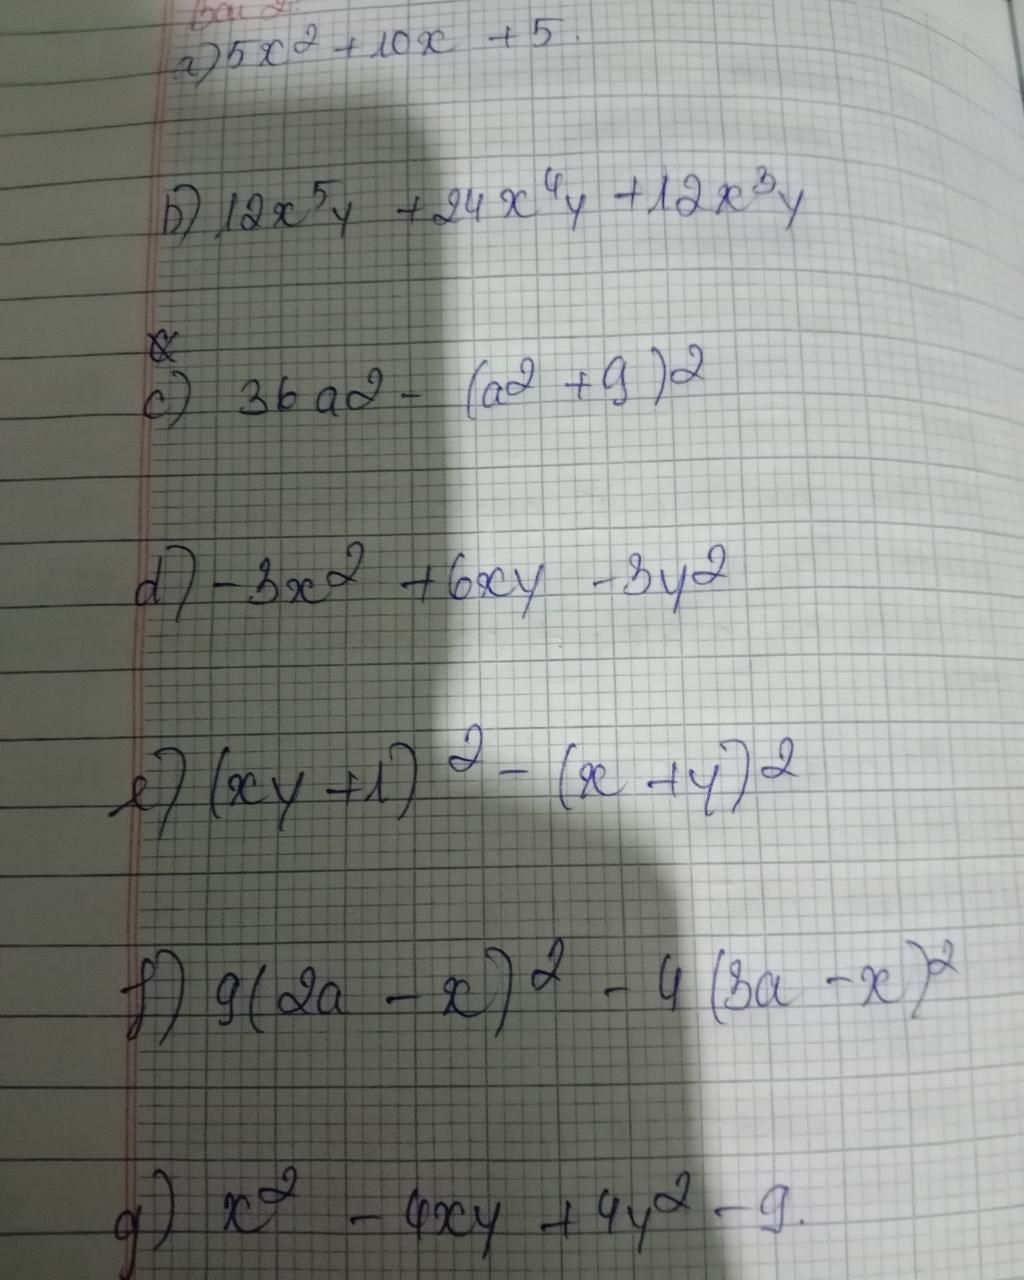 Bài 2:
a) 5x² + 10x + 5.
b) 12x⁵y + 24x⁴y + 12x³y
c) 36a2 - (a2 + 9)2
d) -3x² + 6xy - 3y²
e) (xy + 1)² - (x + y)²
f) 9(2a - x)² - 4(3a - x)²
g) x² - 4xy + 4y² - 9.